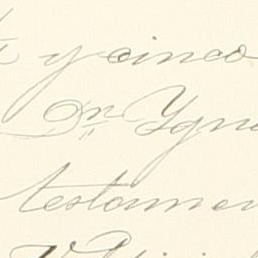 y cinco
Dn Ygna
testamen